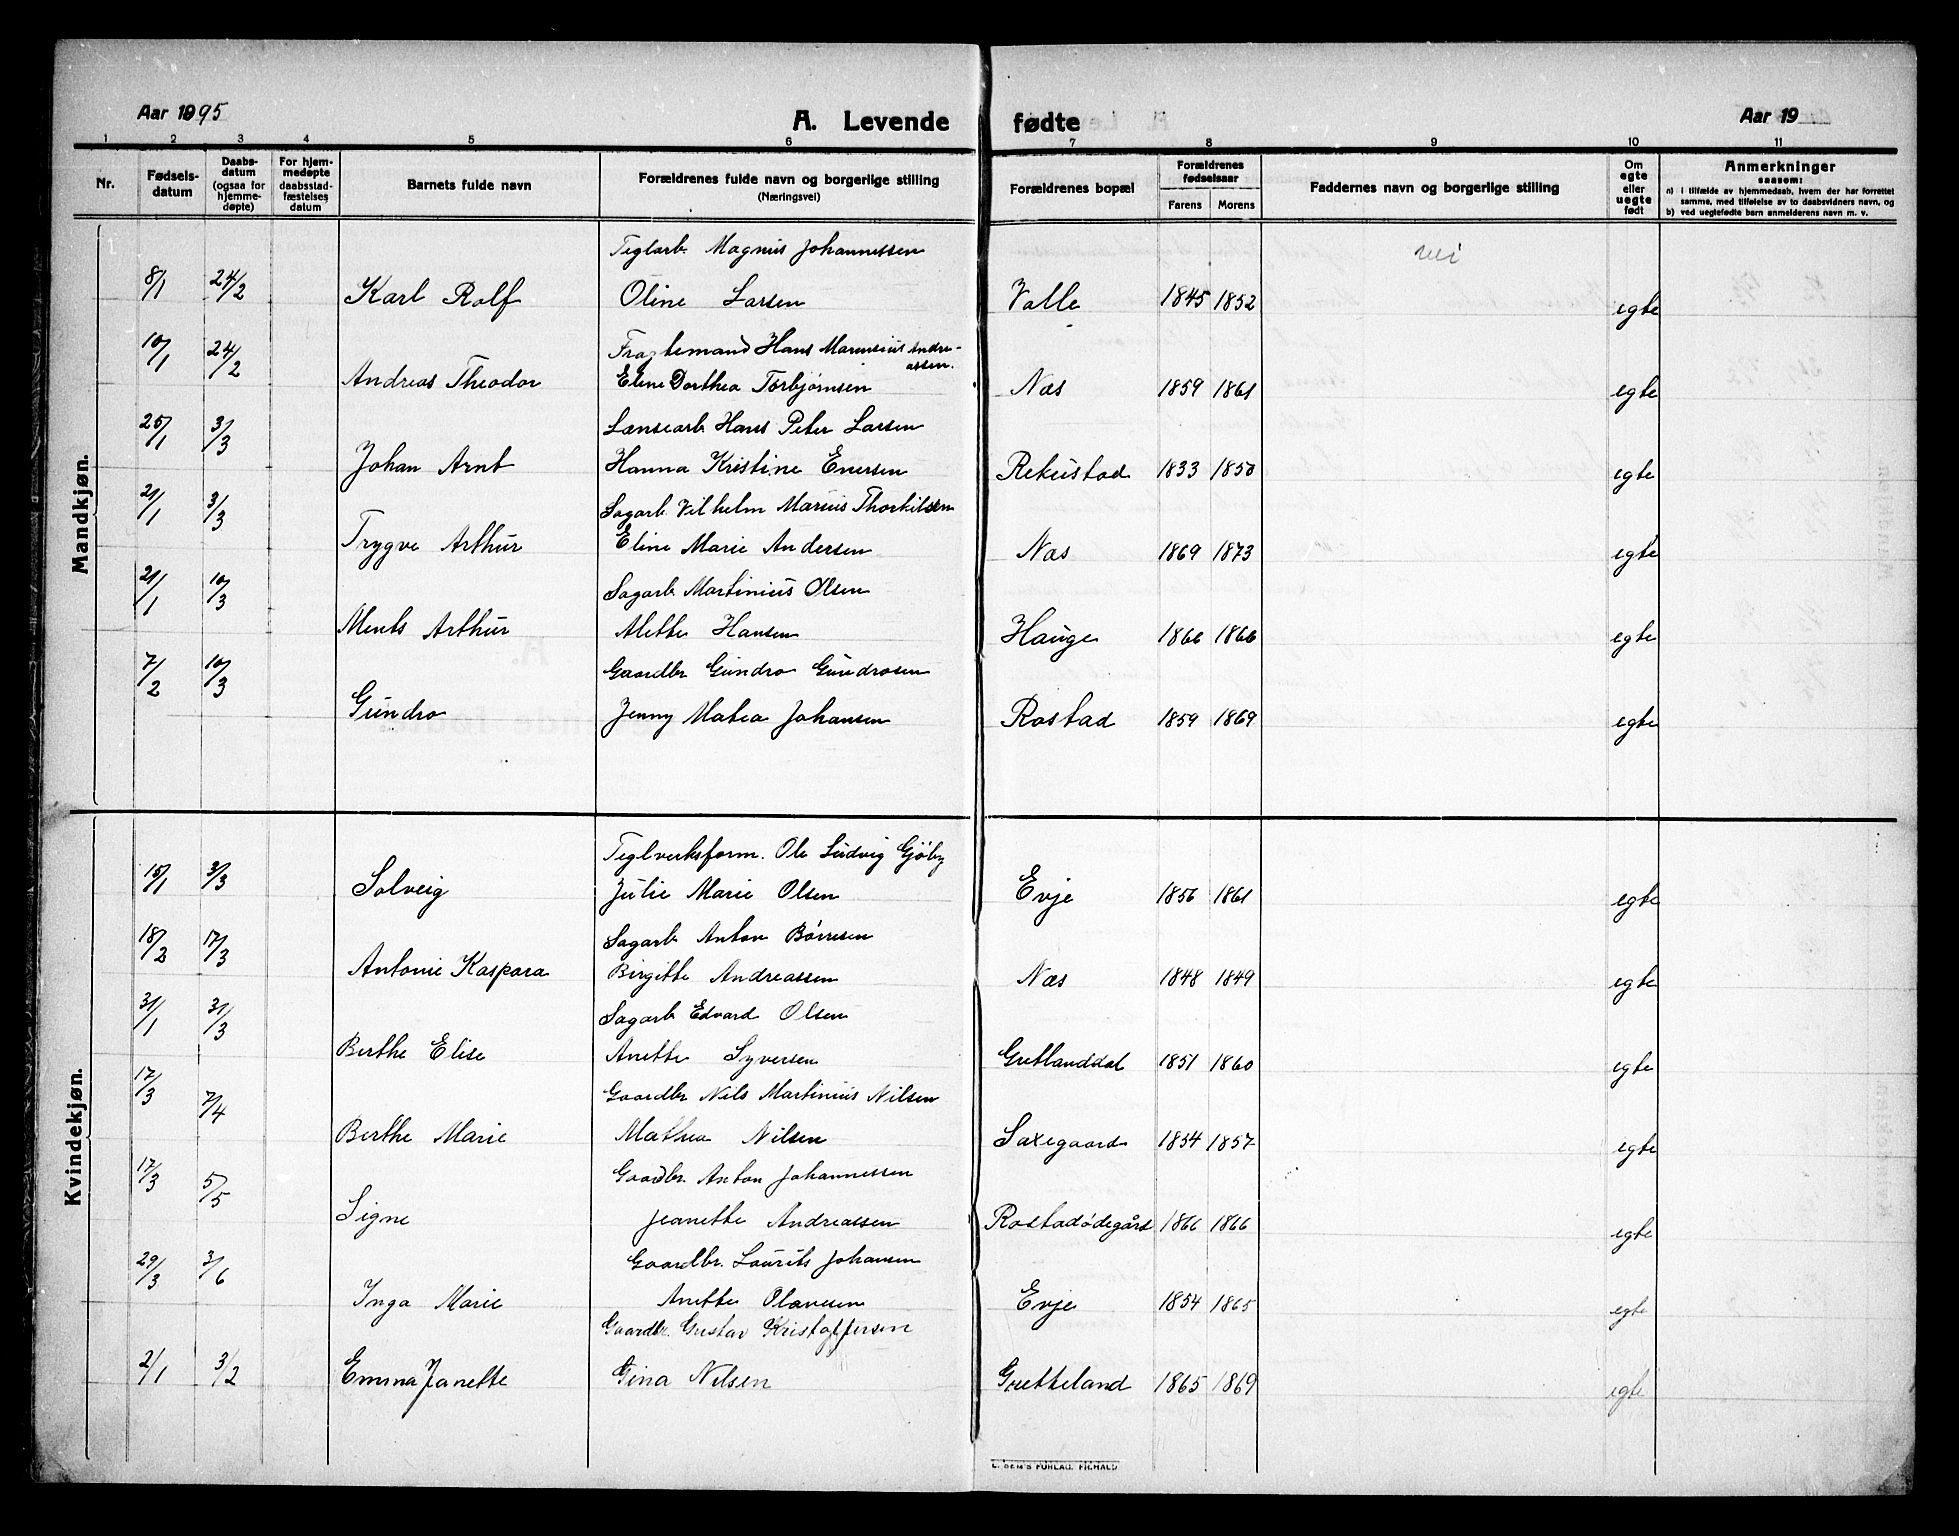 Aar 1895
A. Levende
fødte
Aar 19
1 2 3 4 5 6 7 8 9 10 11
Nr.
Fødsels-
datum
Daabs-
datum
(ogsaa for
hjemme-
døpte)
For hjem-
medøpte
daabsstad-
fæstelses
datum
Barnets fulde navn
Forældrenes fulde navn og borgerlige stilling
(Næringsvei)
Forældrenes bopæl
Forældrenes
fødselsaar
Farens Morens
Faddernes navn og borgerlige stilling
Om
egte
eller
uegte
født
Anmerkninger
saasom:
a) i tilfælde av hjemmedaab, hvem der har forrettet
samme, med tilføielse av to daabsvidners navn, og
b) ved uegtefødte barn anmelderens navn m. v.
Mandkjøn.
Teglarb. Magnus Johannessen
8/1 24/2 Karl Rolf Oline Larsen Valle 1845 1852 egte
Fragtemand Hans Marensius Andre-
assen.
10/1 24/2 Andreas Theodor Eline Dorthea Torbjørnsen Næs 1859 1861 egte
Lænsearb. Hans Peter Larsen
25/1 3/3 Johan Arnt Hanna Kristine Enersen Rekustad 1833 1850 egte
Sagarb. Vilhelm Marius Thorkilsen
21/1 3/3 Trygve Arthur Eline Marie Andersen Næs 1869 1873 egte
Sagarb. Martinius Olsen
21/1 10/3 Ments Arthur Alette Hansen Hauge 1866 1866 egte
Gaardbr. Gundro Gundrosen
7/2 10/3 Gundro Jenny Matea Johansen Rostad 1859 1869 egte
Kvindekjøn.
Teglverksform. Ole Ludvig Gjøby
15/1 3/3 Solveig Julie Marie Olsen Evje 1856 1861 egte
Sagarb. Anton Børresen
18/2 17/3 Antonie Kaspara Birgitte Andreassen Næs 1848 1849 egte
Sagarb. Edvard Olsen
31/1 31/3 Berthe Elise Anette Syversen Gretlanddal 1851 1860 egte
Gaardbr. Nils Martinius Nilsen
17/3 7/4 Berthe Marie Mathea Nilsen Saxegaard 1854 1857 egte
Gaardbr. Anton Johannessen
17/3 5/5 Signe Jeanette Andreassen Rostadødegård 1866 1866 egte
Gaardbr. Laurits Johansen
29/3 3/6 Inga Marie Anette Olavesen Evje 1854 1865 egte
Gaardbr. Gustav Kristoffersen
2/1 3/2 Emma Janette Gina Nilsen Gretteland 1865 1869 egte